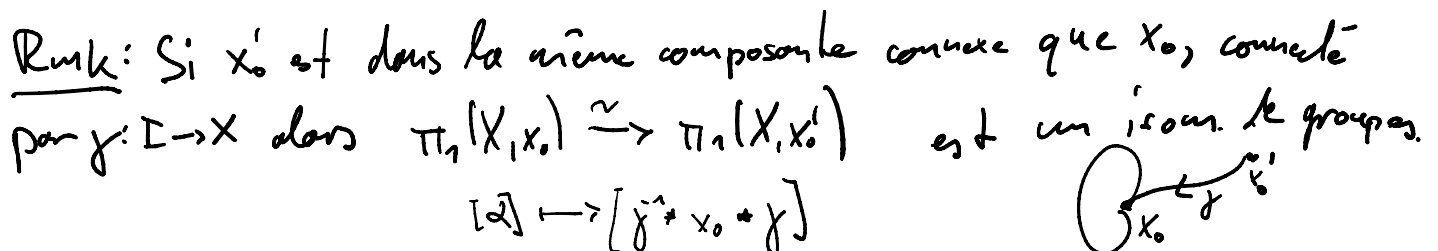 Rmk: Si x₀' est dans la même composante connexe que x₀, connecté
par γ: I → X alors π₁(X, x₀) ≃→ π₁(X, x₀') est un isom. de groupes.
[α] ↦ [γ⁻¹ * x₀ * γ]
x₀ γ x₀'